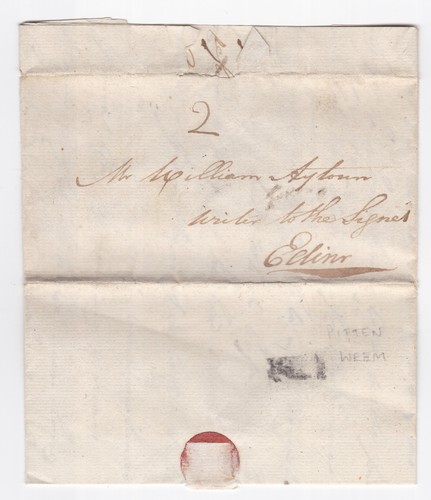 2
Mr William Aytoun
Writer to the Signet
Edinr
PITTEN
WEEM